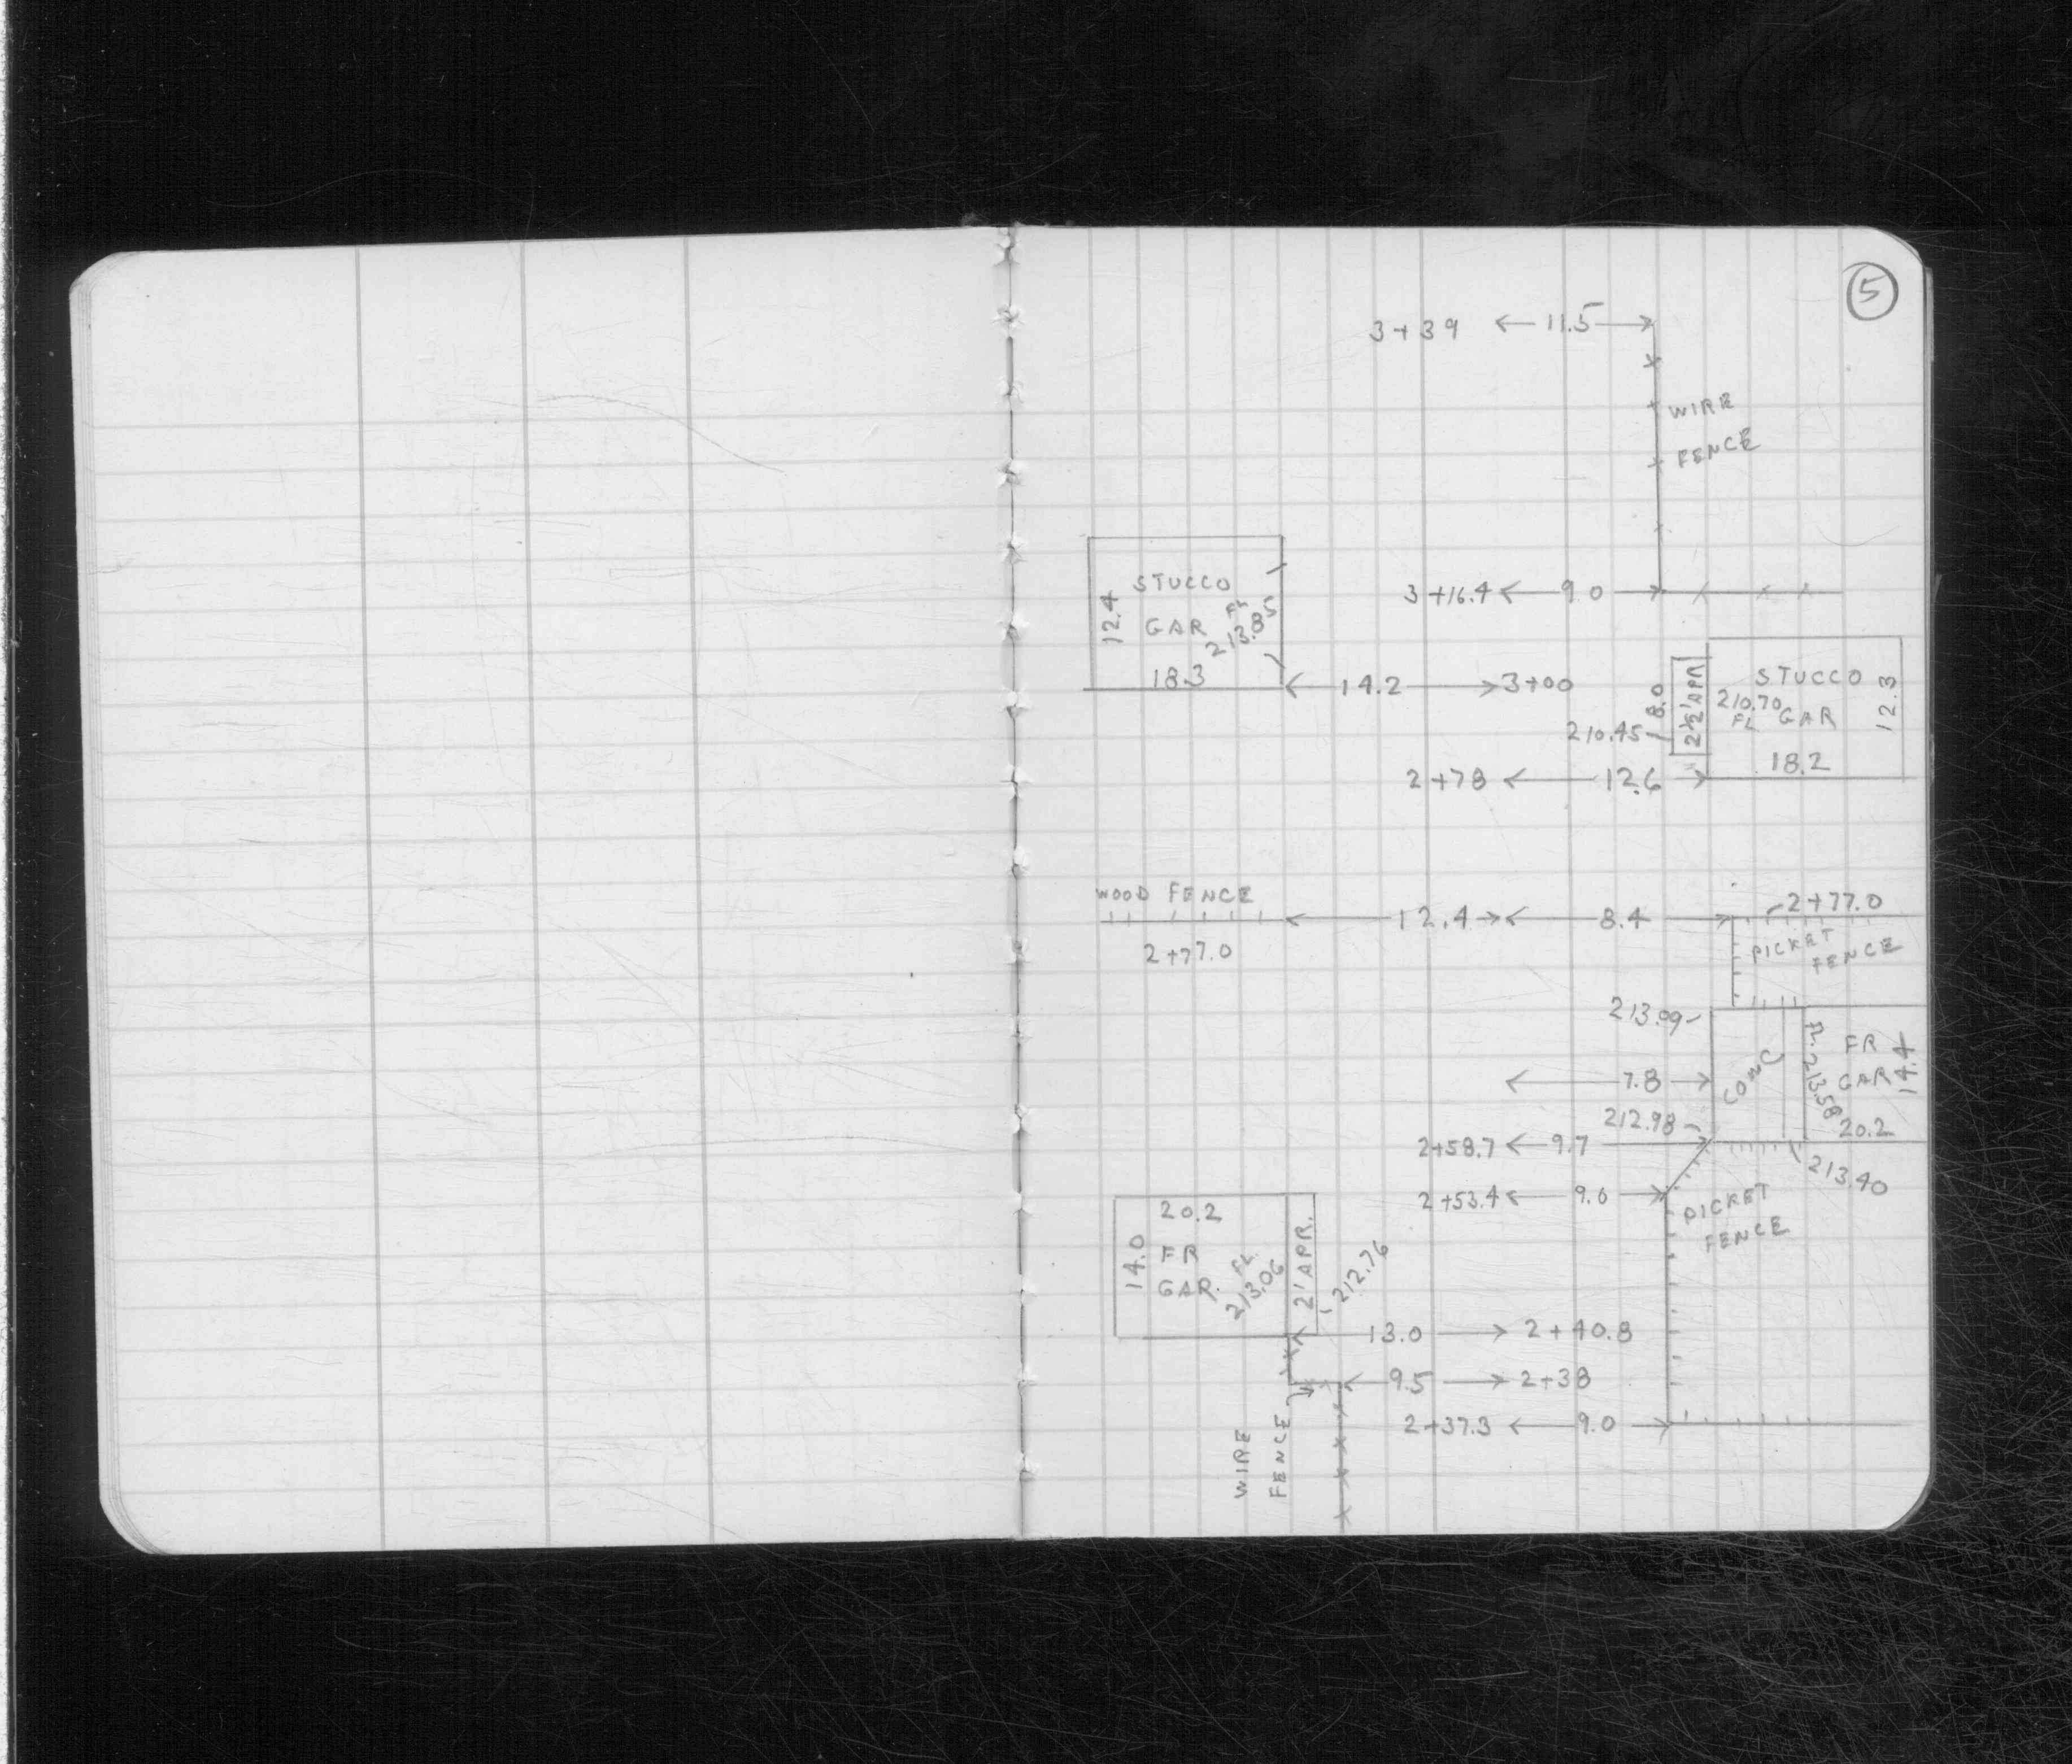 5
3+39 11.5
WIRE
FENCE
STUCCO
12.4
GAR
FL
213.85
18.3
3+16.4 9.0
14.2 3+00
8.0
2½' APR
STUCCO
210.70
FL GAR
12.3
18.2
210.45
2+78 12.6
WOOD FENCE
2+77.0
12.4 8.4
2+77.0
PICKET
FENCE
213.09
CONC
FL. 213.58
FR
GAR
14.4
20.2
7.8
212.98
2+58.7 9.7
213.40
2+53.4 9.6
PICKET
FENCE
20.2
14.0
FR
GAR.
FL.
213.06
2' APR.
212.76
13.0 2+40.8
9.5 2+38
2+37.3 9.0
WIRE
FENCE